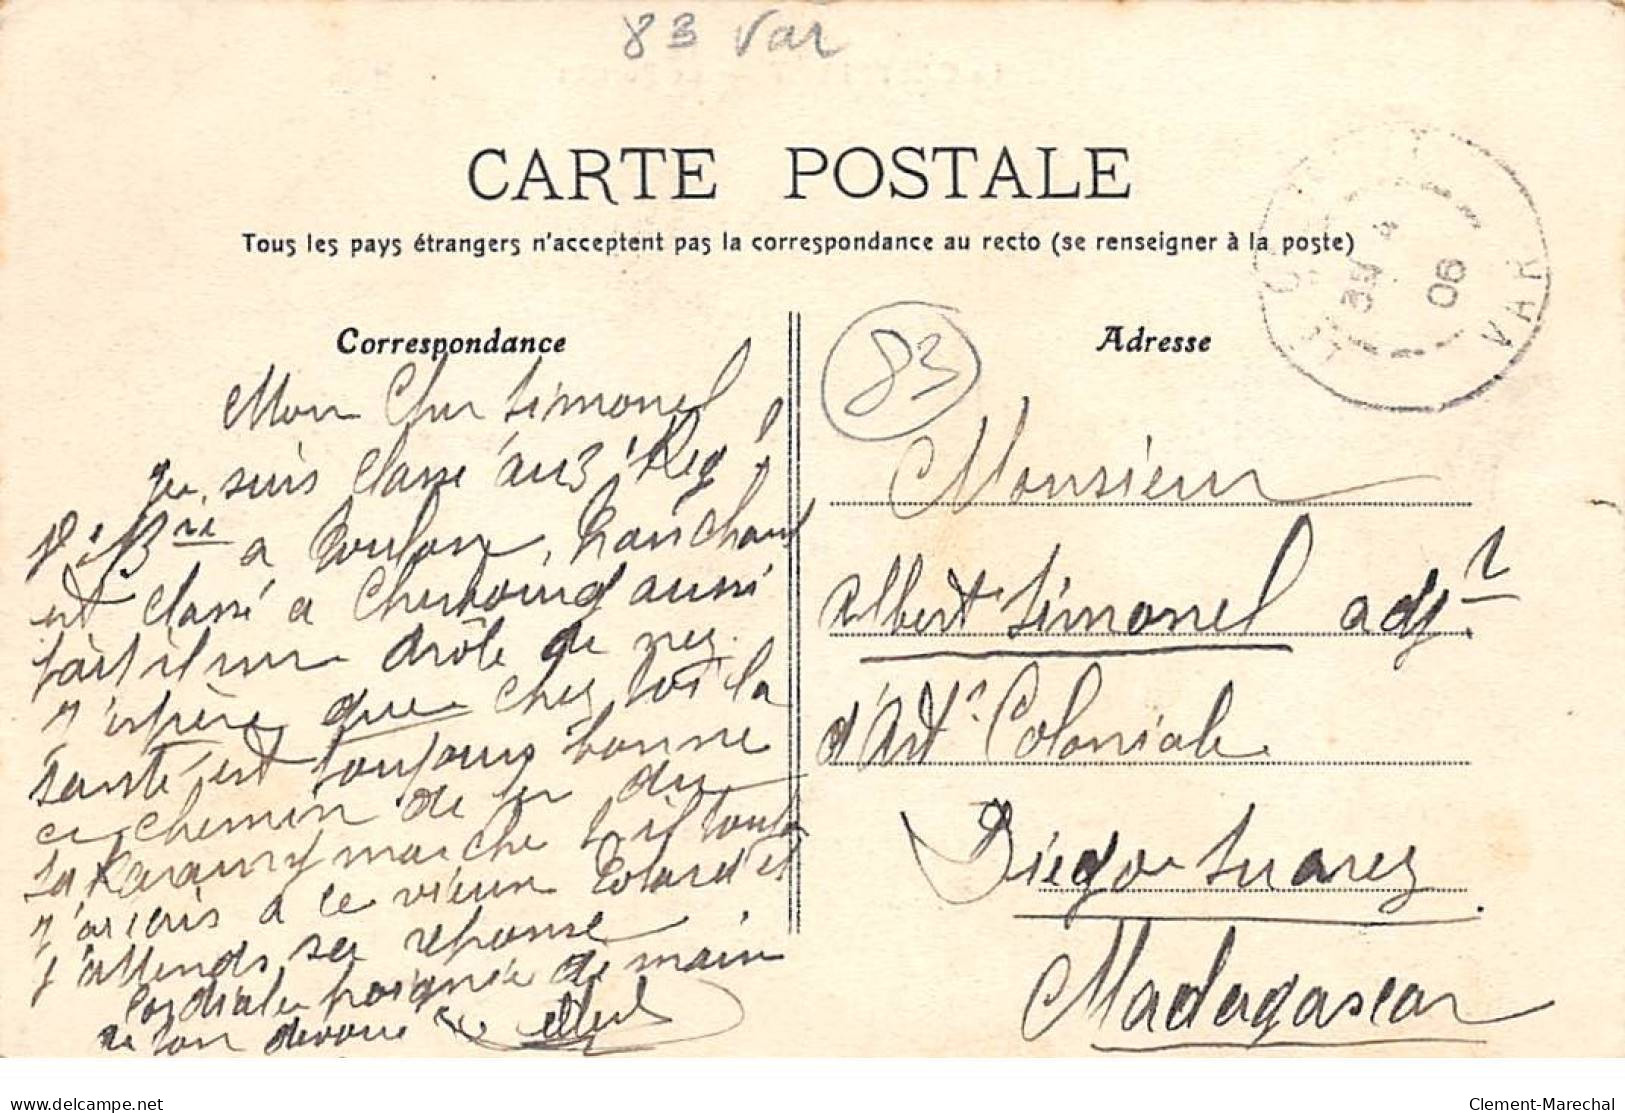 83 Var
CARTE POSTALE
Tous les pays étrangers n'acceptent pas la correspondance au recto (se renseigner à la poste)
Correspondance
Mon Cher Simonel
Je suis classé au 3e Reg
Brie a Toulon, Tranchant
est classé a Cherbourg aussi
fait il un drôle de nez.
J'espère que chez toi la
santé est toujours bonne
ce chemin de fer du
marche t-il toujours
J'écris a ce vieux Colard et
J'attends sa réponse
Cordiale poignée de main
de ton dévoué
83
Adresse
Monsieur
Albert Simonel adjt
d'Artie Coloniale
Diego Suarez
Madagascar
06
VAR
delcampe.net
Clement-Marechal